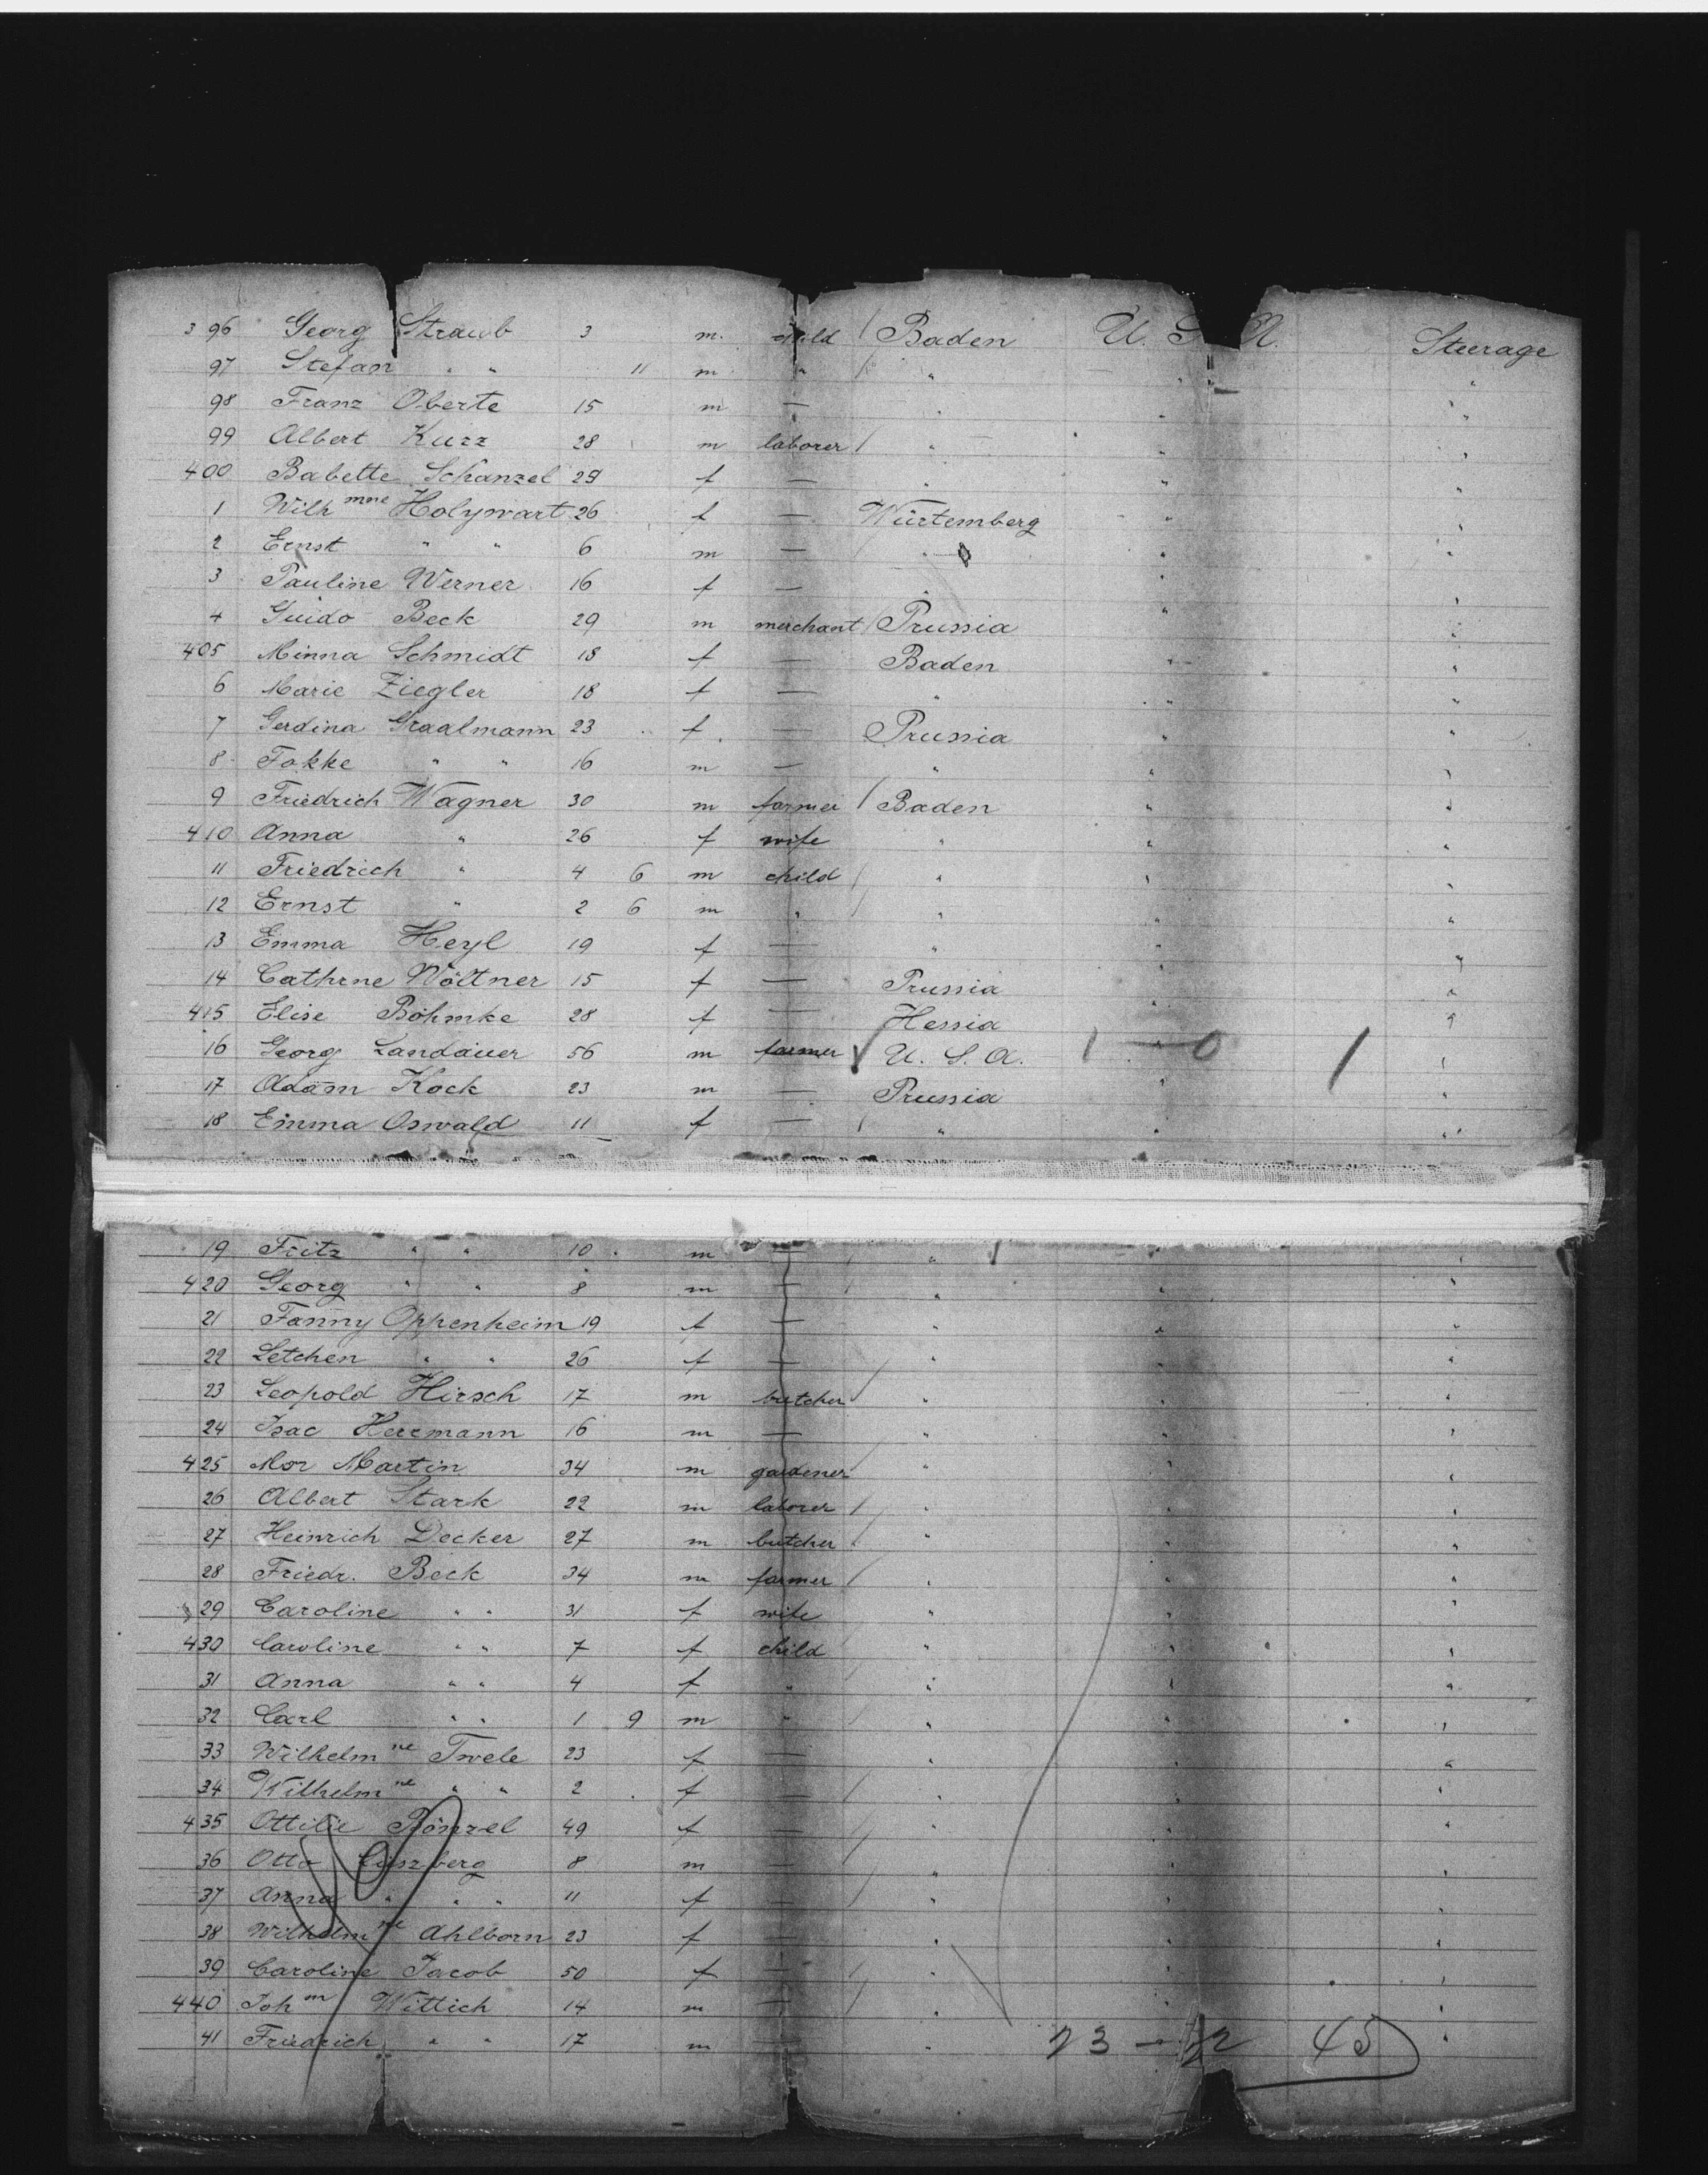 3 96 Georg Straub 3 m. child / Baden U. S. A. Steerage
97 Stefan " " 11 m " / " " "
98 Franz Oberte 15 m — " " "
99 Albert Kurz 28 m laborer / " " "
400 Babette Schanzel 29 f — " " "
1 Wilh mine Holzwart 26 f — Würtemberg " "
2 Ernst " " 6 m — " " "
3 Pauline Werner 16 f — " " "
4 Guido Beck 29 m merchant / Prussia " "
405 Minna Schmidt 18 f — Baden " "
6 Marie Ziegler 18 f — " " "
7 Gerdina Graalmann 23 f. — Prussia " "
8 Fokke " " 16 m — " " "
9 Friedrich Wagner 30 m farmer / Baden " "
410 Anna " 26 f wife " " "
11 Friedrich " 4 6 m child / " " "
12 Ernst " 2 6 m " / " " "
13 Emma Heyl 19 f — " " "
14 Cathrne Wöltner 15 f — Prussia " "
415 Elise Böhmke 28 f — Hessia " "
16 Georg Landauer 56 m farmer √ U. S. A. 1 — 0 1 "
17 Adam Kock 23 m — Prussia " "
18 Emma Oswald 11 f — / " " "
19 Fritz " " 10 m — " " "
420 Georg " " 8 m — " " "
21 Fanny Oppenheim 19 f — " " "
22 Letchen " " 26 f — / " " "
23 Leopold Hirsch 17 m butcher / " " "
24 Isac Herrmann 16 m — " " "
425 Mor Martin 34 m gardener / " " "
26 Albert Stark 22 m laborer / " " "
27 Heinrich Decker 27 m butcher / " " "
28 Friedr. Beck 34 m farmer / " " "
29 Caroline " " 31 f wife " " "
430 Caroline " " 7 f child / " " "
31 Anna " " 4 f " / " " "
32 Carl " " 1 9 m " / " " "
33 Wilhelm ne Twele 23 f — " " "
34 Wilhelm ne " " 2 f — / " " "
435 Ottilie Bönzel 49 f — / " " "
36 Otto Günzberg 8 m — / " " "
37 Anna " " " 11 f — / " " "
38 Wilhelm ne Ahlborn 23 f — " " "
39 Caroline Jacob 50 f — / " " "
440 Joh nn Wittich 14 m — / " " "
41 Friedrich " " 17 m — " 23 — 22 45 "